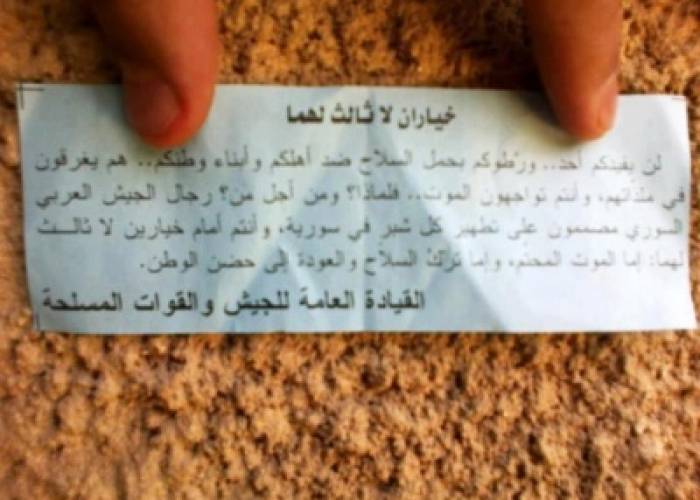 خياران لا ثالث لهما
لن يفيدكم أحد.. ورّطوكم بحمل السلاح ضد أهلكم وأبناء وطنكم.. هم يغرقون
في ملذاتهم، وأنتم تواجهون الموت.. فلماذا؟ ومن أجل من؟ رجال الجيش العربي
السوري مصممون على تطهير كل شبرٍ في سورية، وأنتم أمام خيارين لا ثالث
لهما: إما الموت المحتّم، وإما ترك السلاح والعودة إلى حضن الوطن.
القيادة العامة للجيش والقوات المسلحة